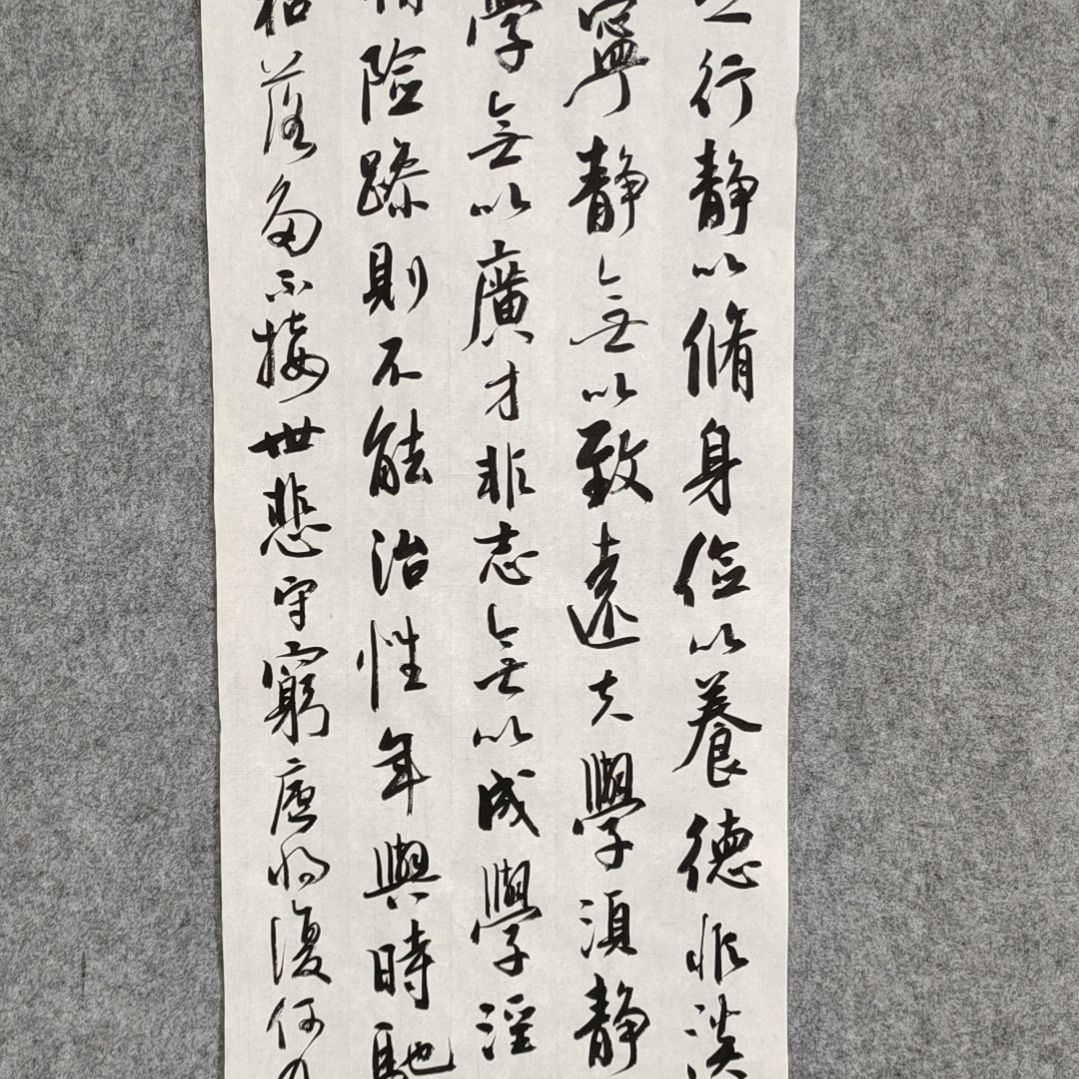 之行靜以脩身儉以養德非淡
寧靜無以致遠夫學須靜
學無以廣才非志無以成學淫
險躁則不能治性年與時馳
落多不接世悲守窮廬將復何